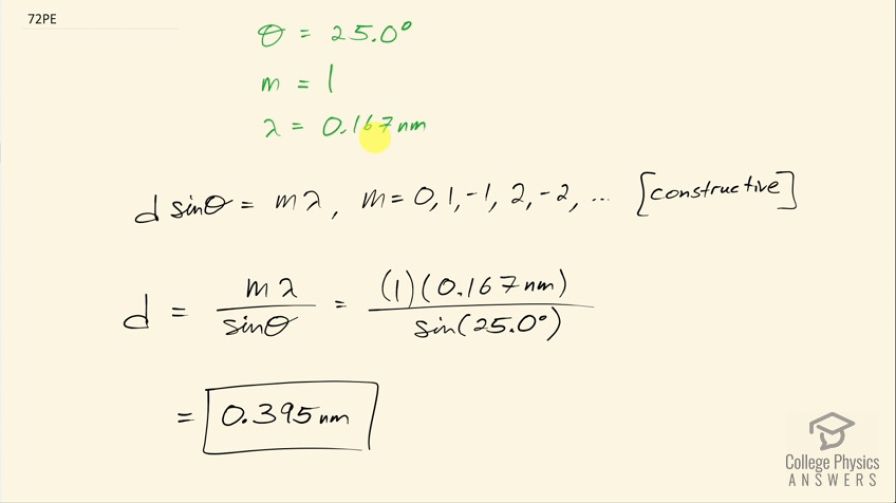 72PE
θ = 25.0°
m = 1
λ = 0.167nm
d sinθ = mλ, m = 0, 1, -1, 2, -2, ... [constructive]
d = mλ / sinθ = (1)(0.167nm) / sin(25.0°)
= 0.395nm
College Physics
ANSWERS